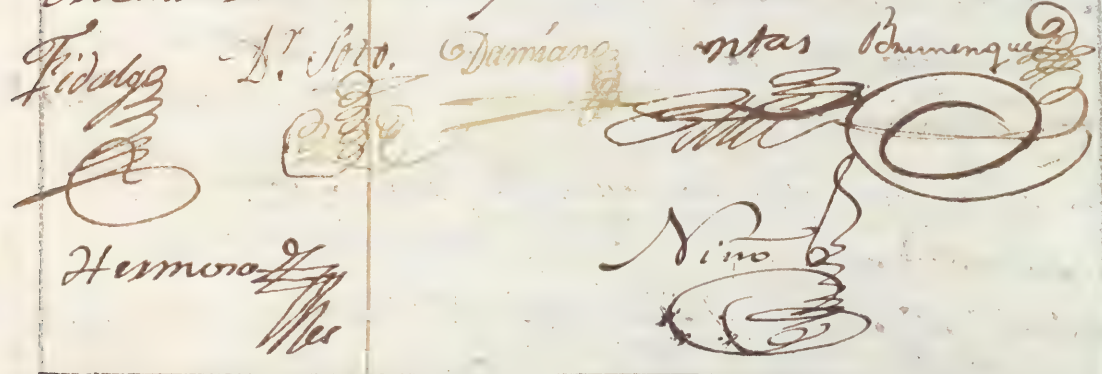 Fidalgo Dr. Soto. Damiano Brunenque
Hermoso Niño